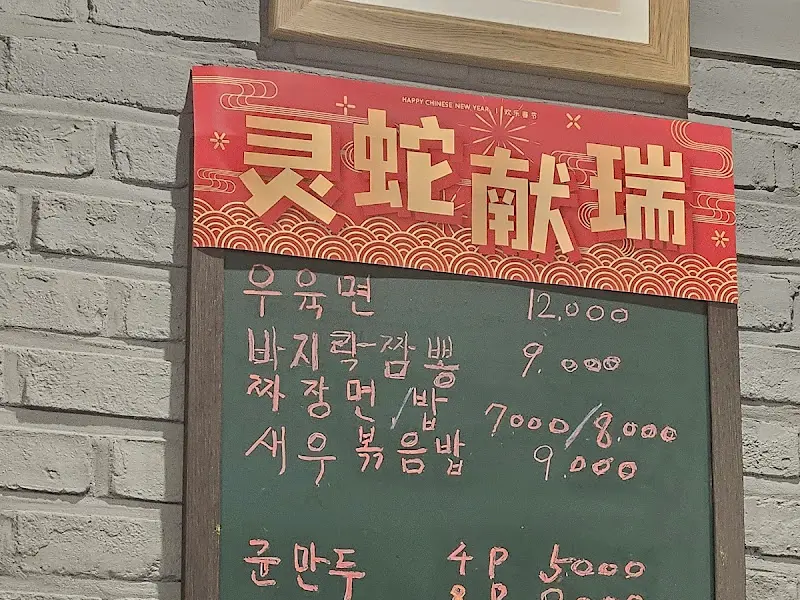 HAPPY CHINESE NEW YEAR 欢乐春节
灵蛇献瑞
우육면 12,000
바지락짬뽕 9.000
짜장면/밥 7000/8.000
새우볶음밥 9.000
군만두 4P 5000
8P